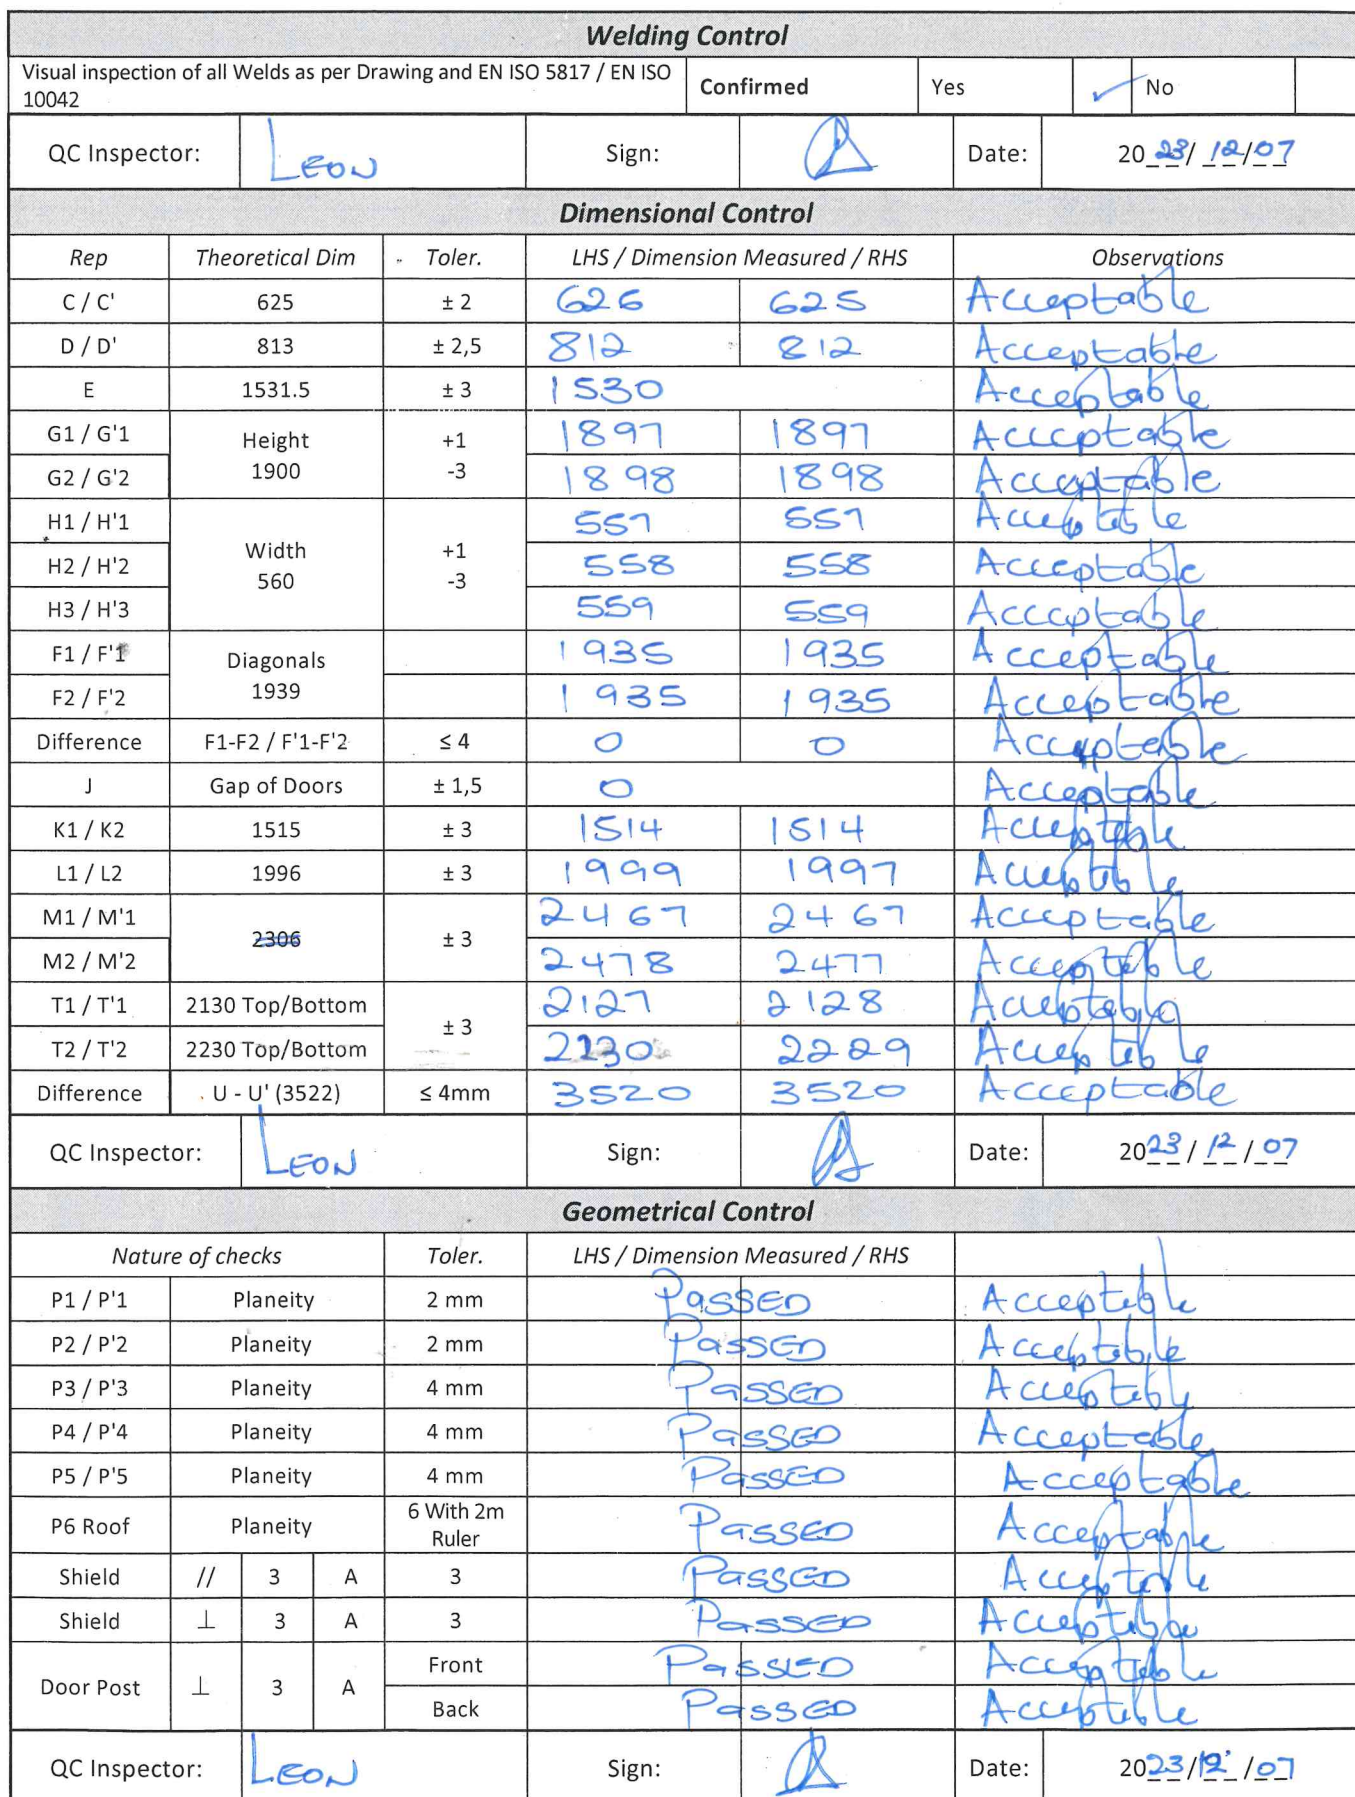 Welding Control
Visual inspection of all Welds as per Drawing and EN ISO 5817 / EN ISO 10042 Confirmed Yes ✓ No
QC Inspector: LEON Sign: Date: 2023/12/07
Dimensional Control
Rep Theoretical Dim Toler. LHS / Dimension Measured / RHS Observations
C / C' 625 ± 2 626 625 Acceptable
D / D' 813 ± 2,5 812 812 Acceptable
E 1531.5 ± 3 1530 Acceptable
G1 / G'1 Height 1900 +1 -3 1897 1897 Acceptable
G2 / G'2 1898 1898 Acceptable
H1 / H'1 Width 560 +1 -3 557 557 Acceptable
H2 / H'2 558 558 Acceptable
H3 / H'3 559 559 Acceptable
F1 / F'1 Diagonals 1939 1935 1935 Acceptable
F2 / F'2 1935 1935 Acceptable
Difference F1-F2 / F'1-F'2 ≤ 4 0 0 Acceptable
J Gap of Doors ± 1,5 0 Acceptable
K1 / K2 1515 ± 3 1514 1514 Acceptable
L1 / L2 1996 ± 3 1999 1997 Acceptable
M1 / M'1 2306 ± 3 2467 2467 Acceptable
M2 / M'2 2478 2477 Acceptable
T1 / T'1 2130 Top/Bottom ± 3 2127 2128 Acceptable
T2 / T'2 2230 Top/Bottom 2230 2229 Acceptable
Difference U - U' (3522) ≤ 4mm 3520 3520 Acceptable
QC Inspector: LEON Sign: Date: 2023/12/07
Geometrical Control
Nature of checks Toler. LHS / Dimension Measured / RHS
P1 / P'1 Planeity 2 mm PASSED Acceptable
P2 / P'2 Planeity 2 mm PASSED Acceptable
P3 / P'3 Planeity 4 mm PASSED Acceptable
P4 / P'4 Planeity 4 mm PASSED Acceptable
P5 / P'5 Planeity 4 mm PASSED Acceptable
P6 Roof Planeity 6 With 2m Ruler PASSED Acceptable
Shield // 3 A 3 PASSED Acceptable
Shield ⊥ 3 A 3 PASSED Acceptable
Door Post ⊥ 3 A Front PASSED Acceptable
Back PASSED Acceptable
QC Inspector: LEON Sign: Date: 2023/12/07